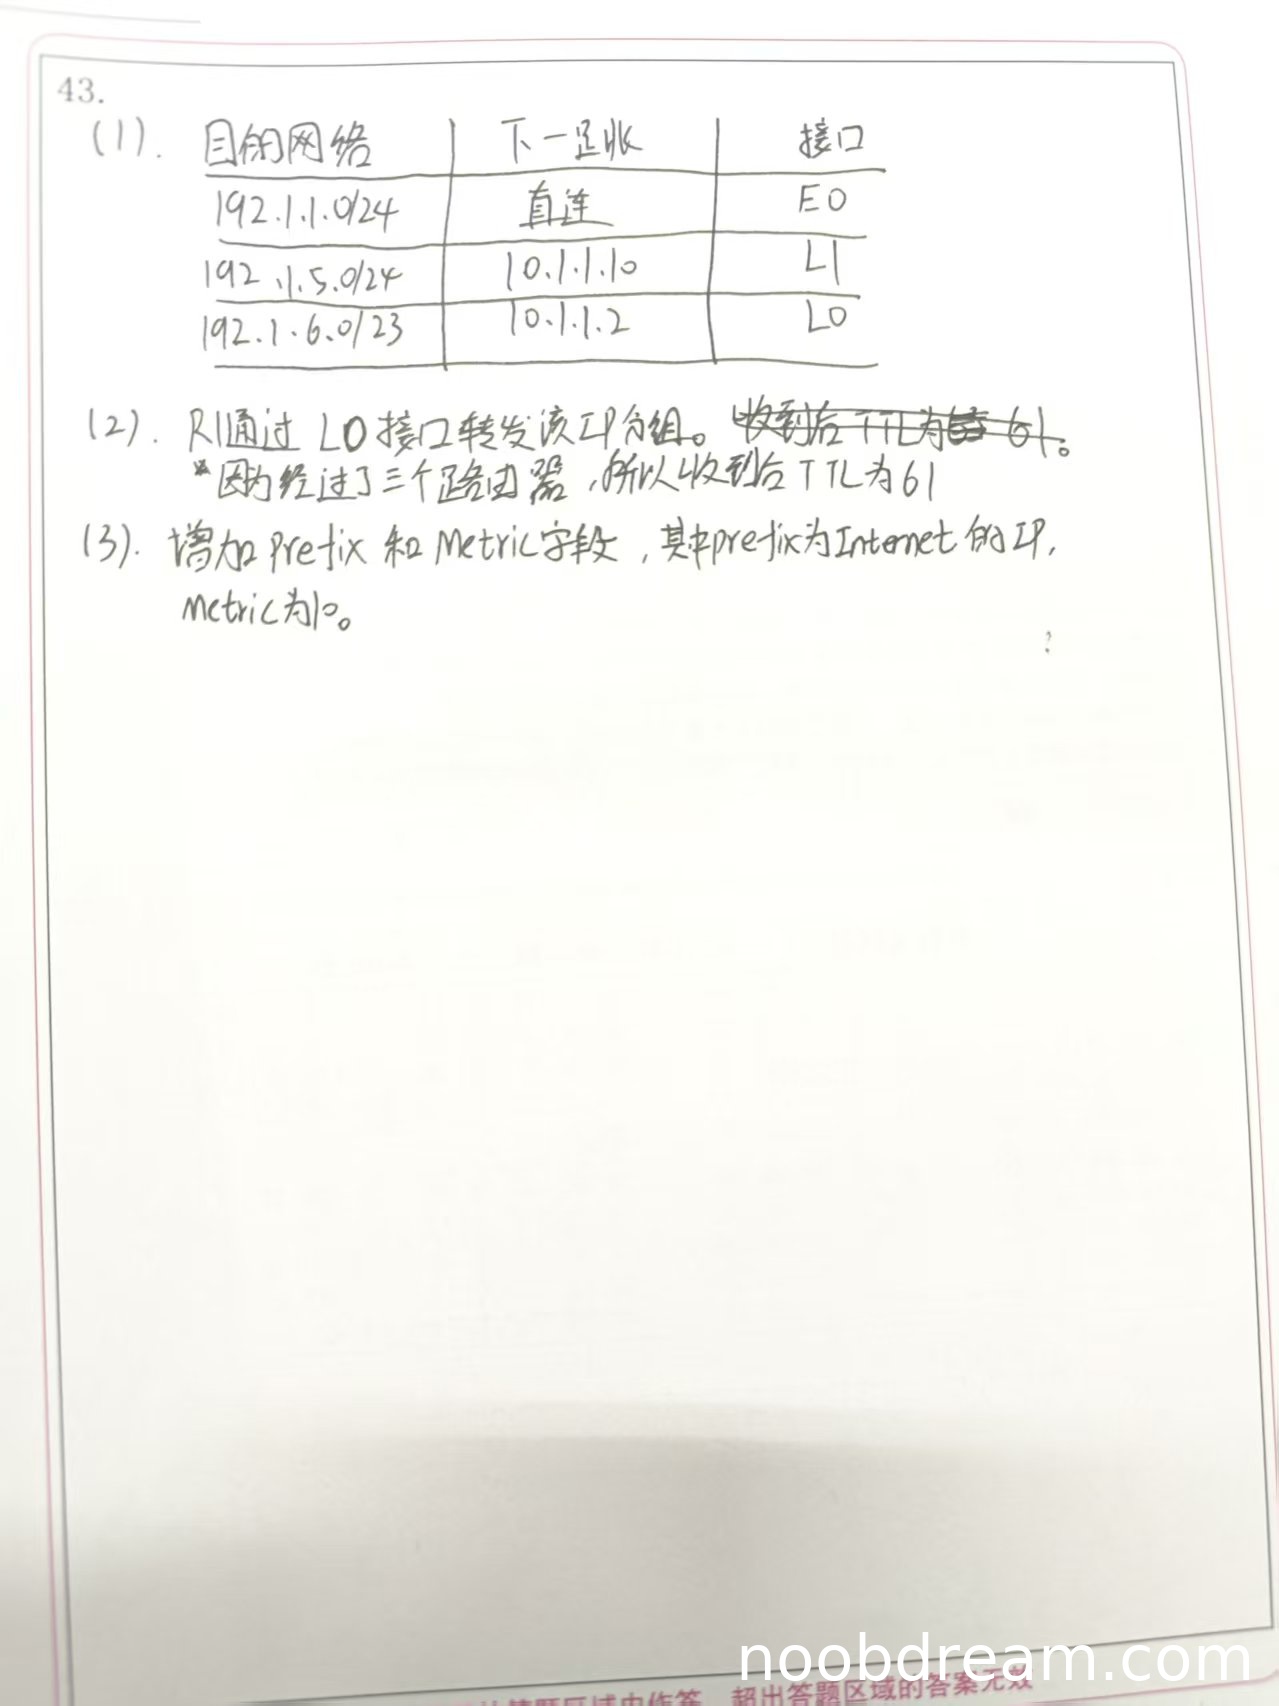 43.
(1). 目的网络 下一跳 接口
192.1.1.0/24 直连 E0
192.1.5.0/24 10.1.1.10 L1
192.1.6.0/23 10.1.1.2 L0
(2). R1通过 L0 接口转发该IP分组。收到后TTL为 61。
因为经过了三个路由器,所以收到后TTL为61
(3). 增加 Prefix 和 Metric字段,其中prefix为Internet的IP,
Metric为10。
超出答题区域的答案无效
noobdream.com